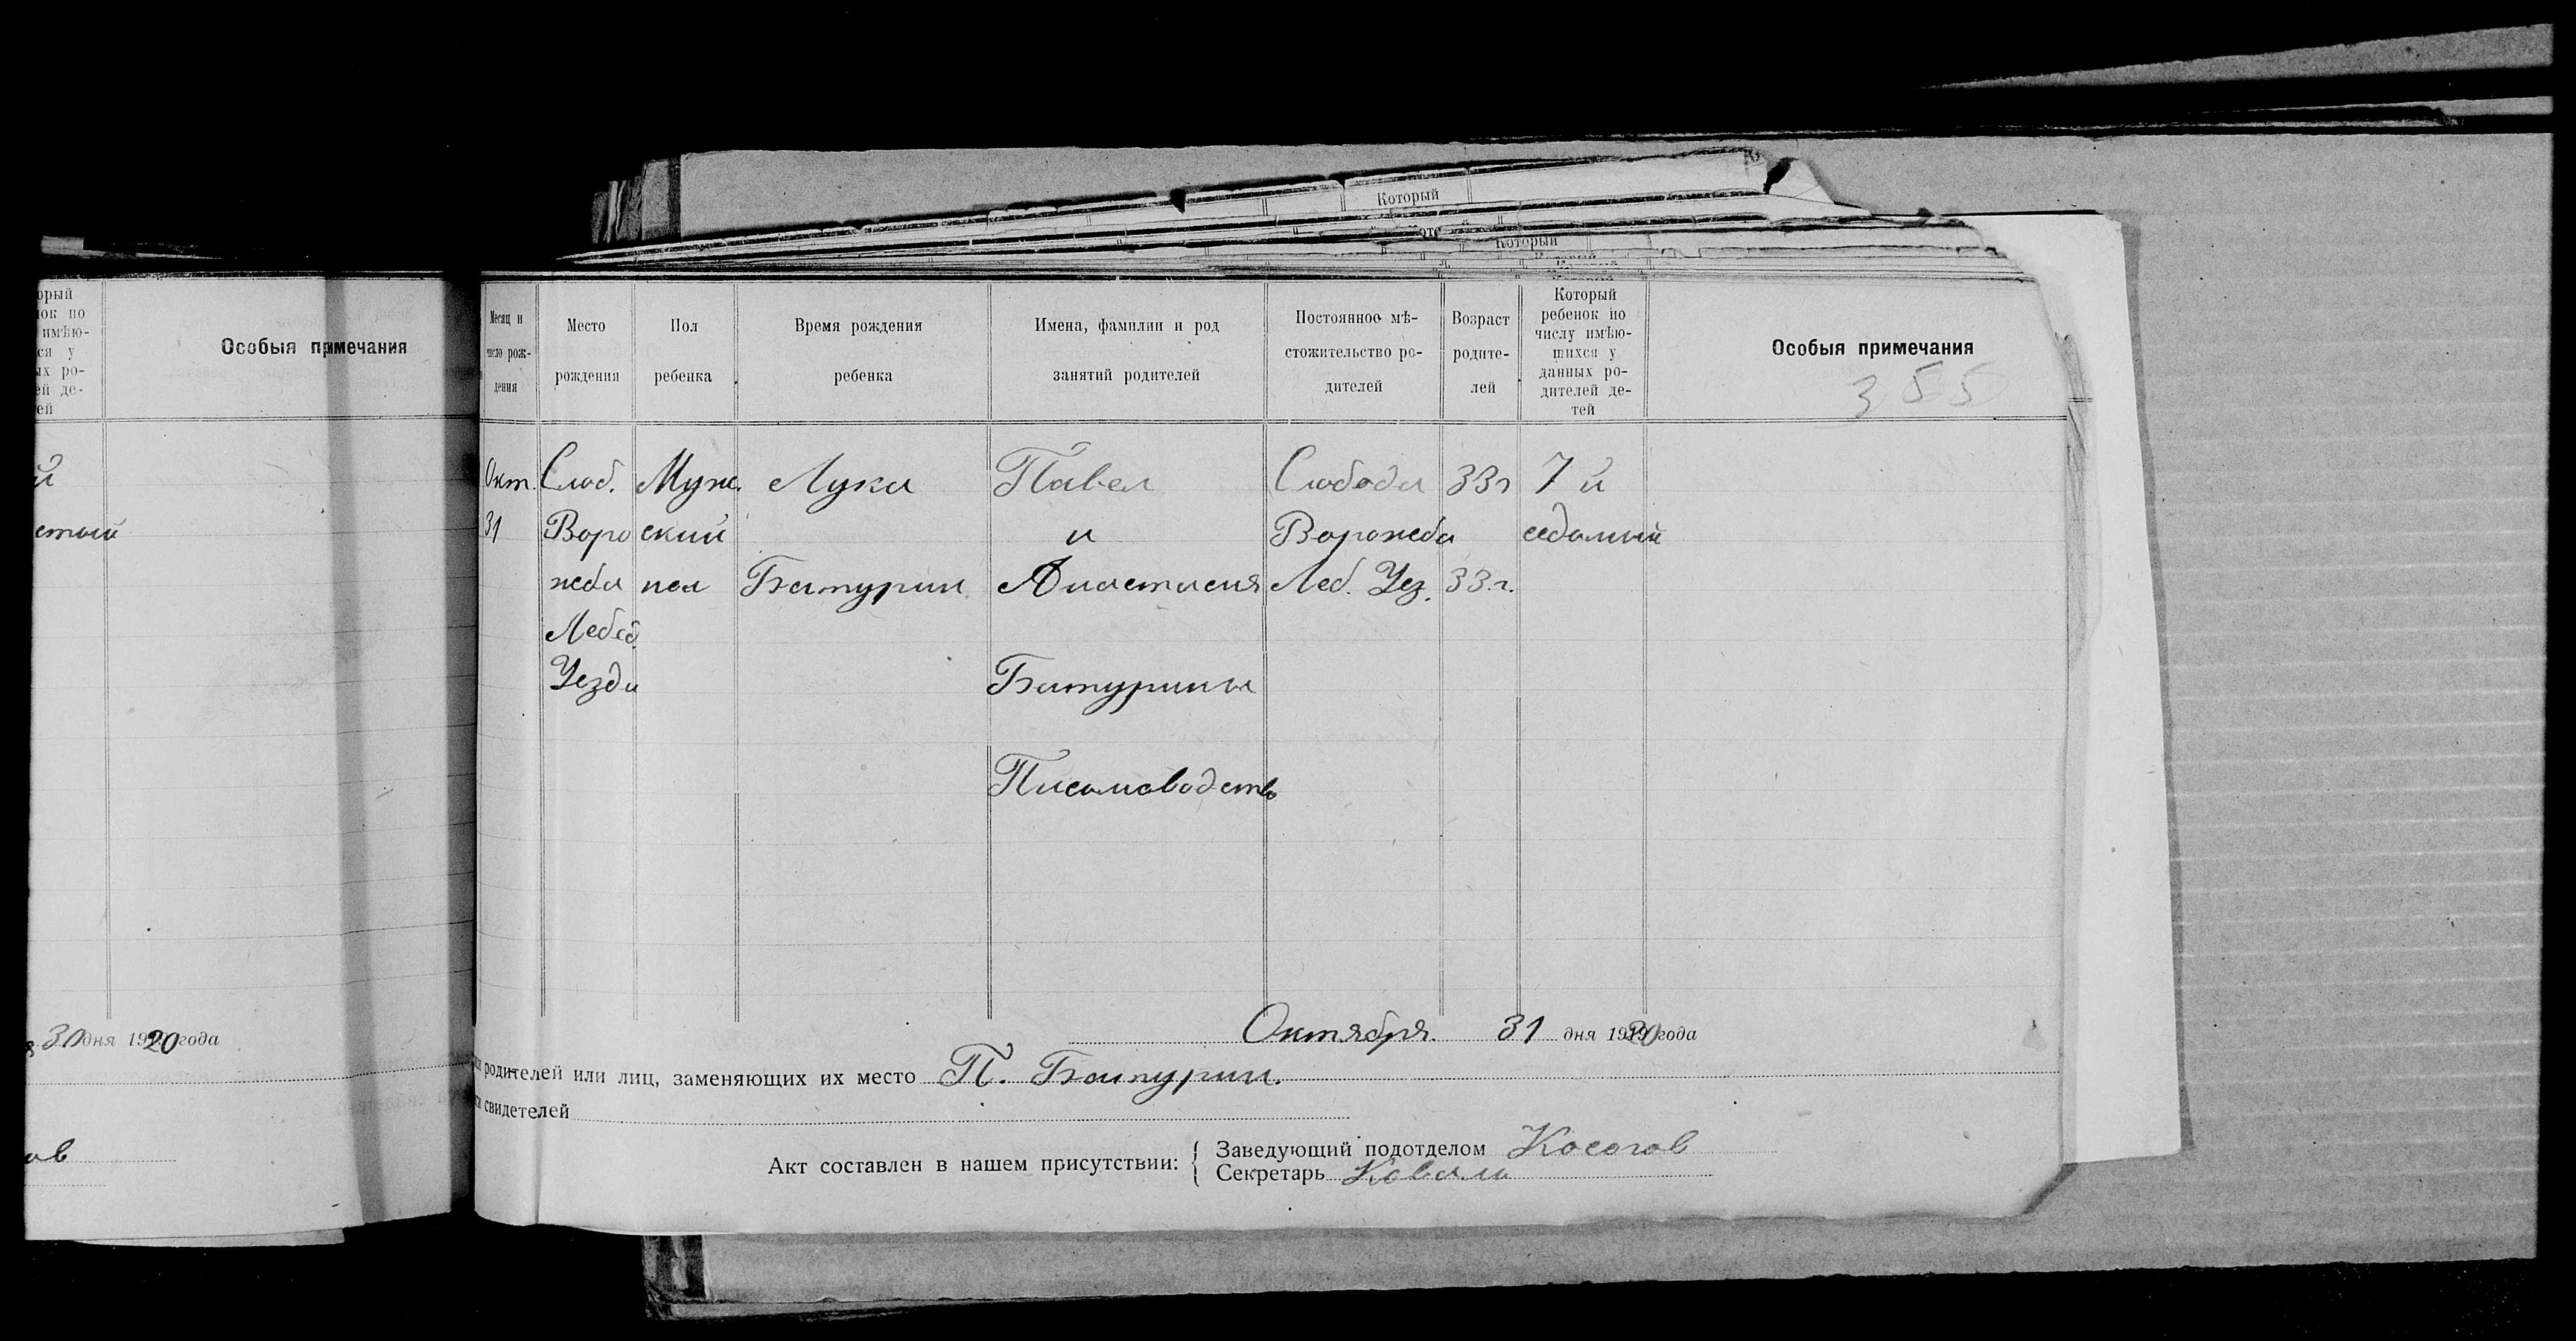 Который
Который
орый
ок по
имѣю-
ся у
ых ро-
ей де-
ей
Особыя примечания
й
стый
30 дня 1920 года
ов
Месяц и
число рож-
дения
Место
рождения
Пол
ребенка
Время рождения
ребенка
Имена, фамилии и род
занятий родителей
Постоянное мѣ-
стожительство ро-
дителей
Возраст
родите-
лей
Который
ребенок по
числу имѣю-
щихся у
данных ро-
дителей де-
тей
Особыя примечания
355
Окт. Слоб. Муж. Лука Павел Слобода 33г 7й
31 Воро ский и Ворожба седьмый
жба пол Батурин Анастасия Леб. Уез. 33.г.
Лебед.
Уезда Батурины
Письмоводство
Октября 31 дня 1920 года
родителей или лиц, заменяющих их место П. Батурин.
свидетелей
Акт составлен в нашем присутствии:
Заведующий подотделом Косогов
Секретарь Коваль